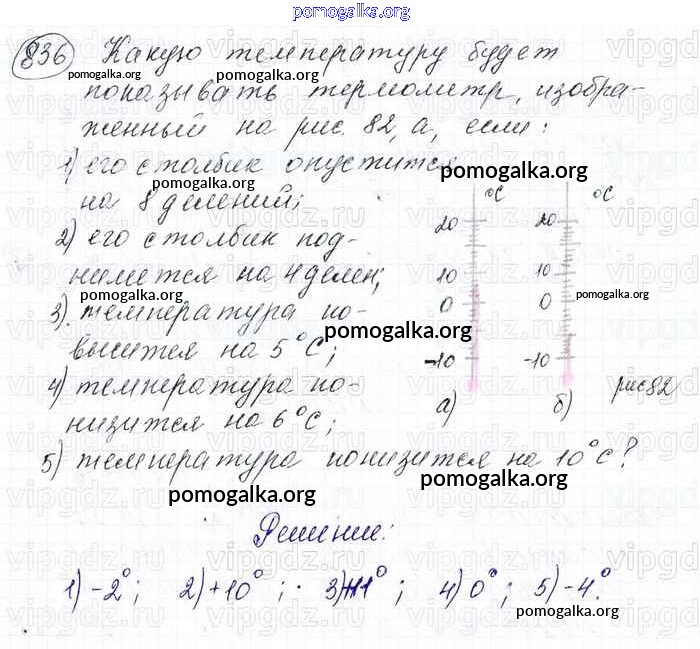 pomogalka.org
836 Какую температуру будет
показывать термометр, изобра-
женный на рис. 82, а, если:
1) его столбик опустится
на 8 делений;
2) его столбик под-
нимется на 4 делен;
3) температура по-
высится на 5°C;
4) температура по-
низится на 6°C;
5) температура понизится на 10°C?
°C
20
10
0
-10
а)
°C
20
10
0
-10
б)
рис 82
Решение:
1) -2°; 2) +10°; 3) +11°; 4) 0°; 5) -4°.
pomogalka.org
pomogalka.org
pomogalka.org
pomogalka.org
pomogalka.org
pomogalka.org
pomogalka.org
pomogalka.org
pomogalka.org
pomogalka.org
pomogalka.org